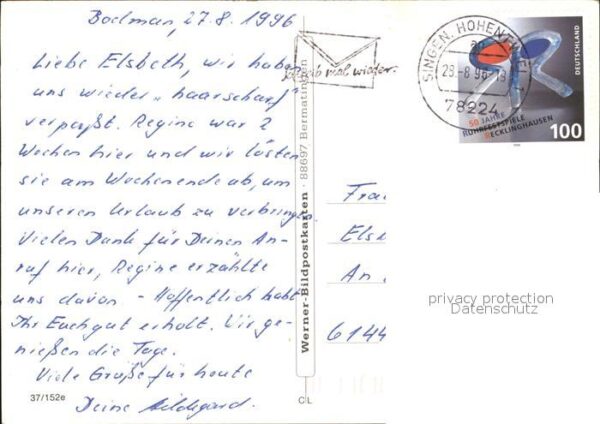 Bodman, 27.8.1996
Liebe Elsbeth, wir haben
uns wieder "haarscharf"
verpaßt. Regine war 2
Wochen hier und wir lösten
sie am Wochenende ab, um
unseren Urlaub zu verbringen.
Vielen Dank für Deinen An-
ruf hier, Regine erzählte
uns davon - Hoffentlich habt
Ihr Euch gut erholt. Wir ge-
nießen die Tage.
Viele Grüße für heute
Deine Hildegard.
37/152e
Werner-Bildpostkarten · 88697 Bermatingen
CL
mal wieder.
SINGEN, HOHENTWIEL 1
29.-8.96-18
78224
DEUTSCHLAND
50 JAHRE
RUHRFESTSPIELE
RECKLINGHAUSEN
100
Frau
Els
An
6144
privacy protection
Datenschutz